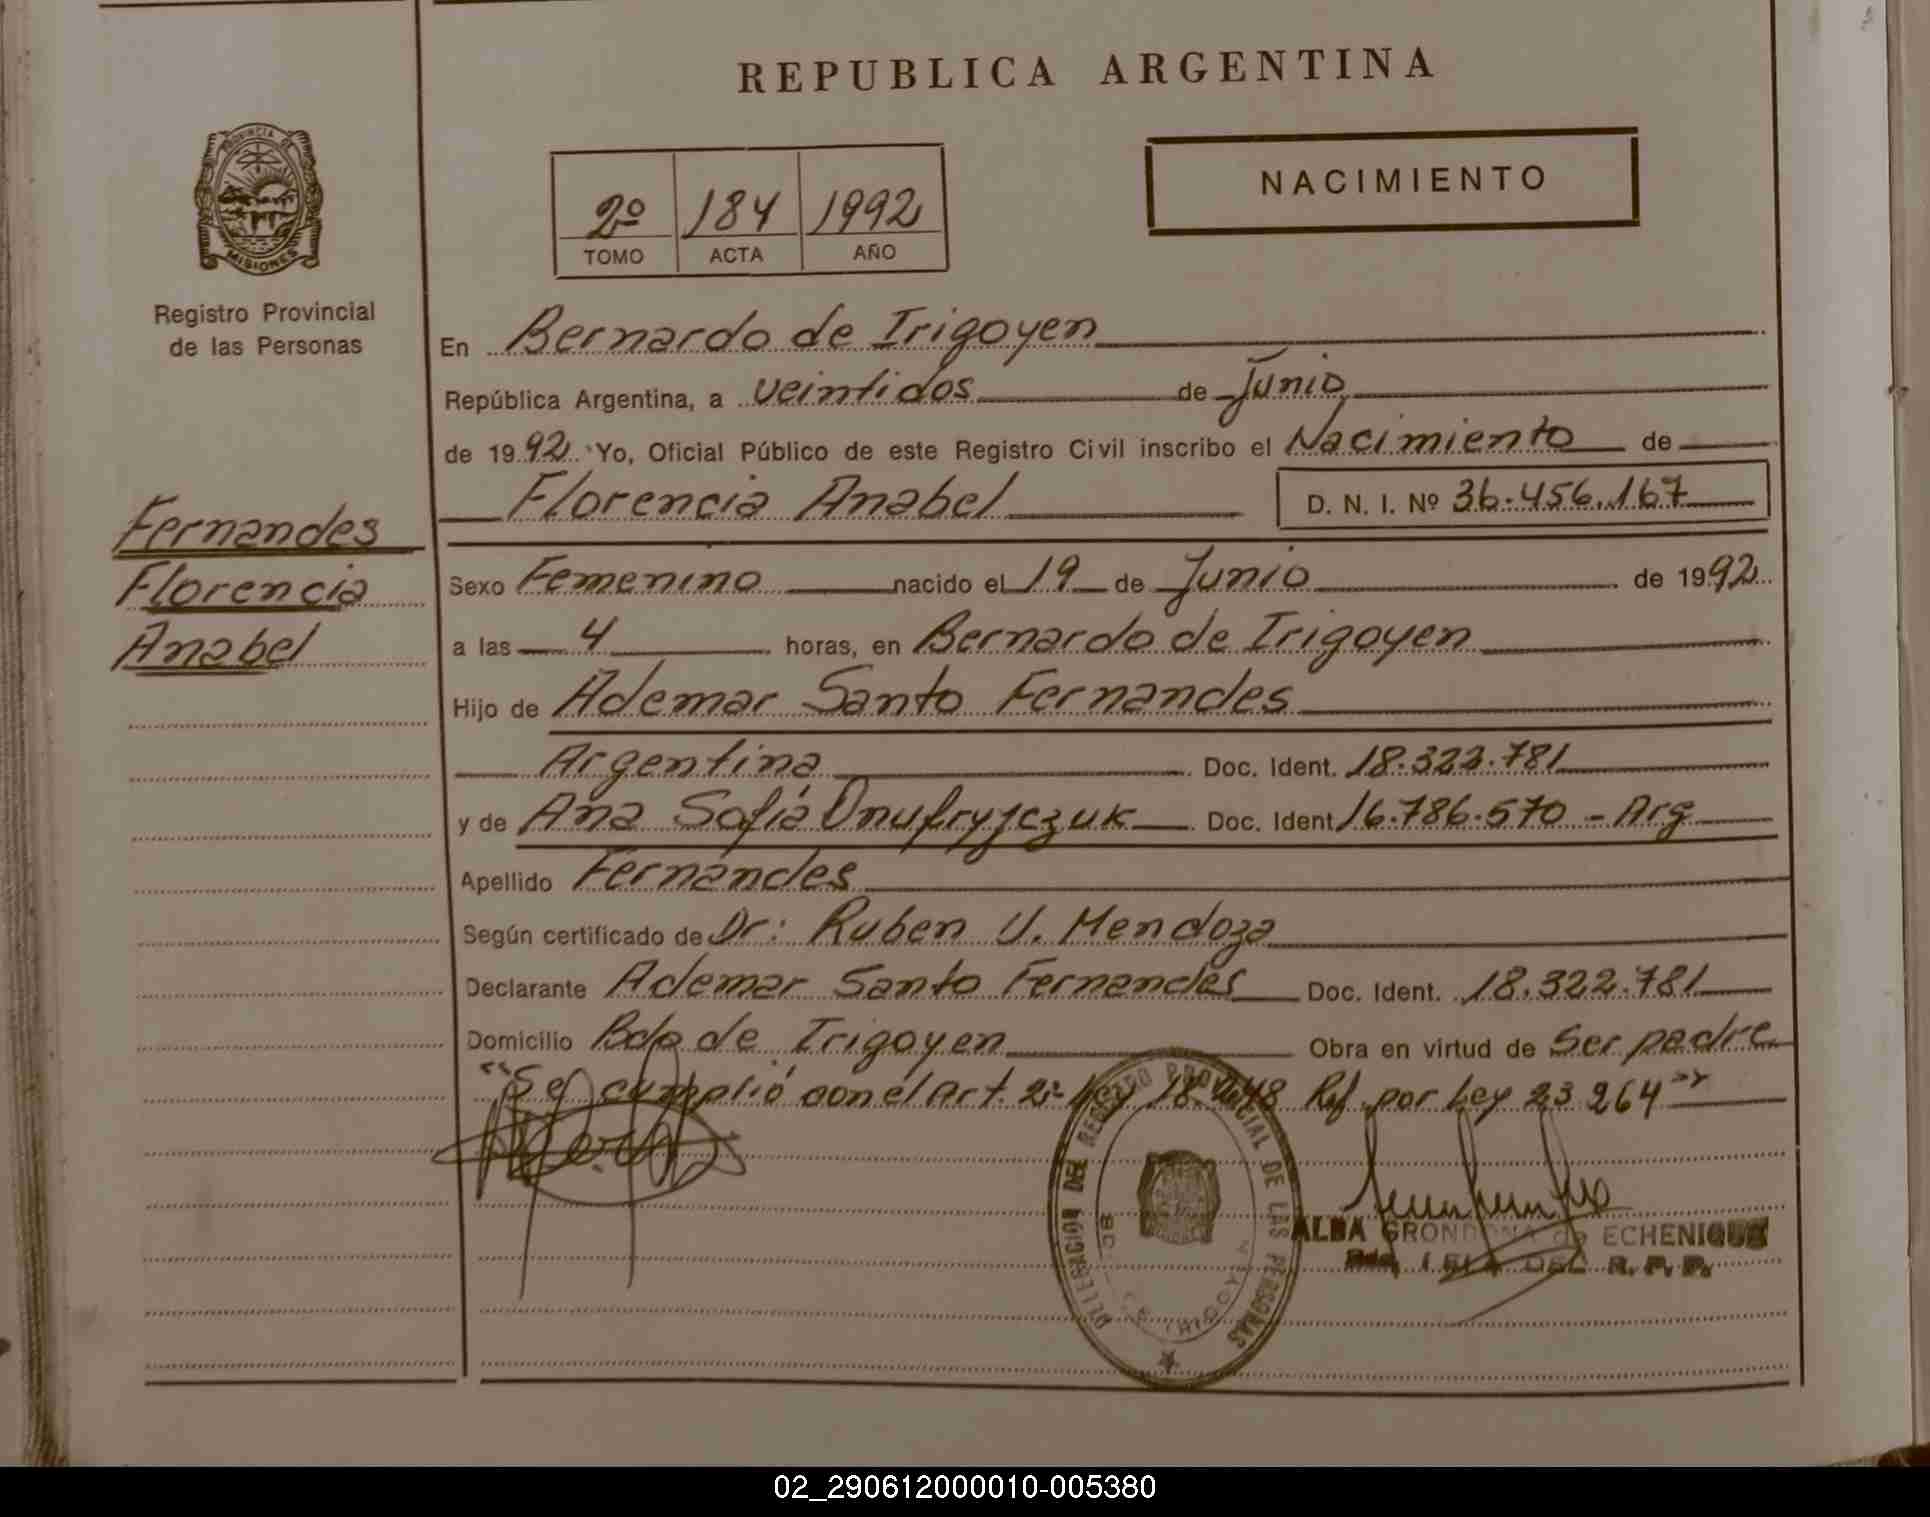 REPUBLICA ARGENTINA
PROVINCIA DE
MISIONES
Registro Provincial
de las Personas
2º 184 1992
TOMO ACTA AÑO
NACIMIENTO
En Bernardo de Irigoyen
República Argentina, a veintidos de Junio
de 1992 Yo, Oficial Público de este Registro Civil inscribo el Nacimiento de
Florencia Anabel D. N. I. Nº 36.456.167
Fernandes
Florencia
Anabel
Sexo Femenino nacido el 19 de Junio de 1992
a las 4 horas, en Bernardo de Irigoyen
Hijo de Ademar Santo Fernandes
Argentina Doc. Ident. 18.322.781
y de Ana Sofía Onufryjczuk Doc. Ident 16.786.570 - Arg
Apellido Fernandes
Según certificado de Dr: Ruben U. Mendoza
Declarante Ademar Santo Fernandes Doc. Ident. 18.322.781
Domicilio Bdo de Irigoyen Obra en virtud de Ser padre
"Se cumplió con el art. 2º Ley 18.248 Ref. por Ley 23 264"
DELEGACION DEL REGISTRO PROVINCIAL DE LAS PERSONAS
BDO. DE IRIGOYEN
ALBA GRONDONA de ECHENIQUE
DEL R. P. P.
02_290612000010-005380